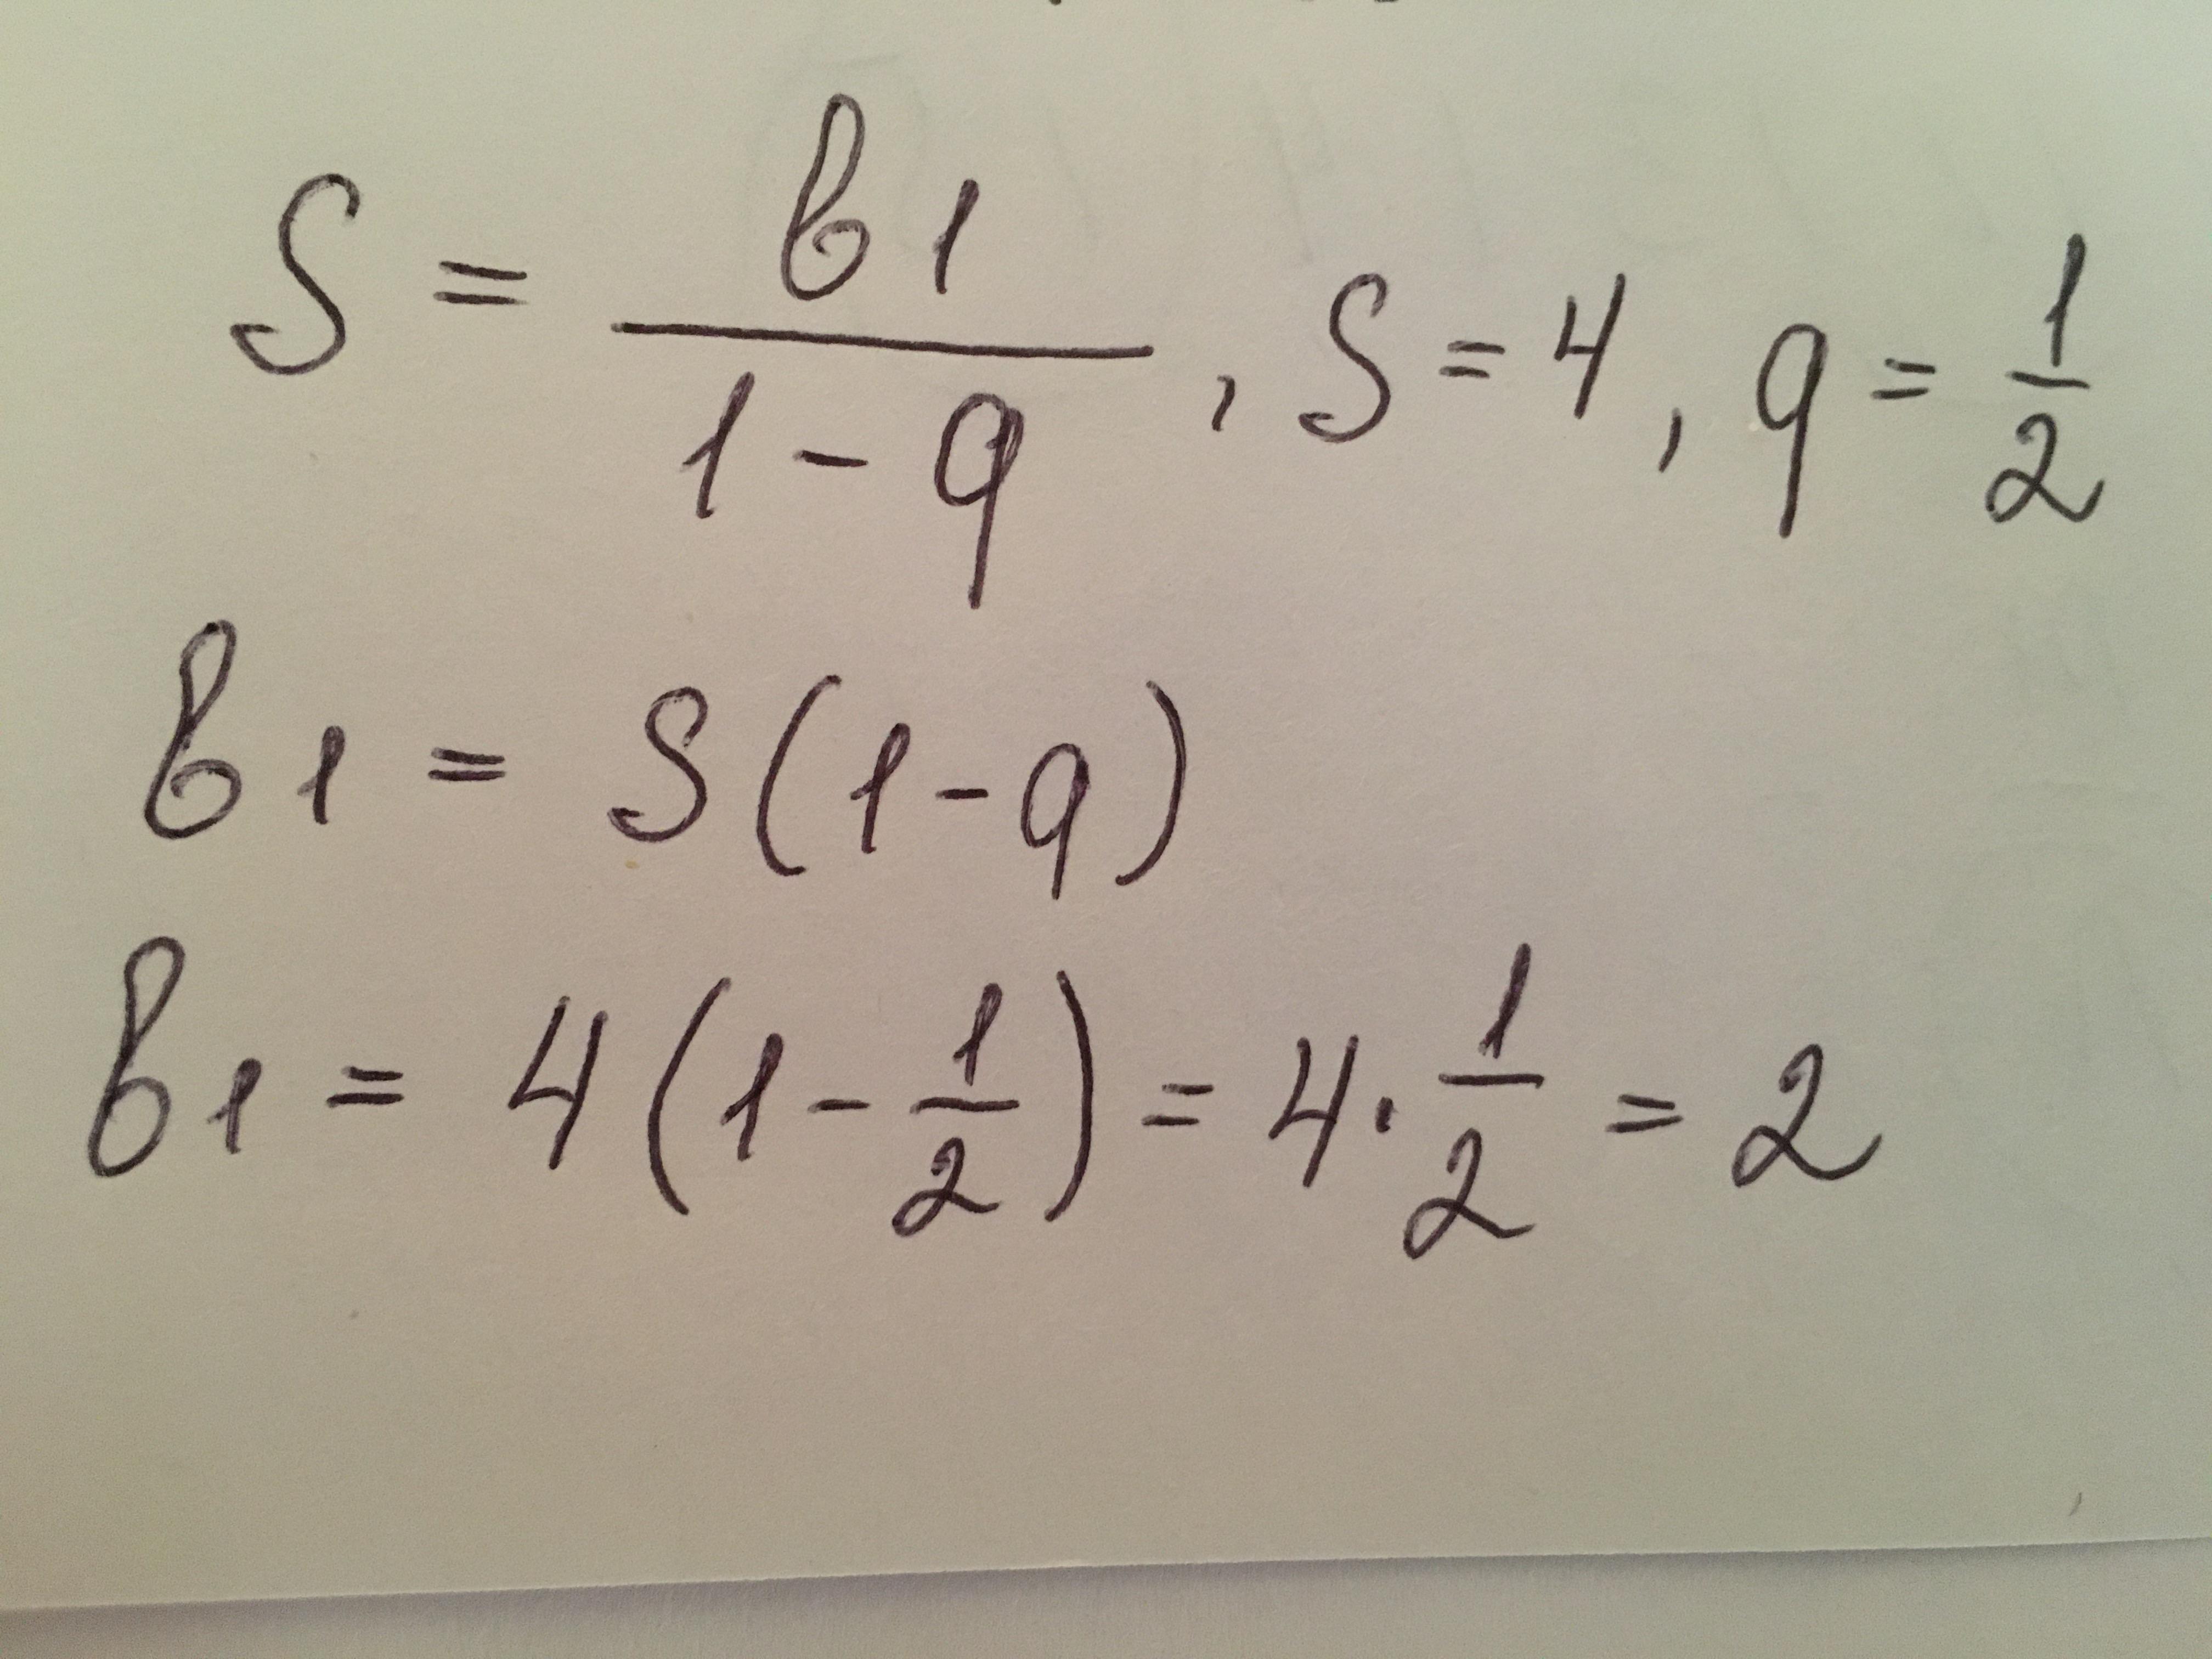 S = в1 / (1 - q), S = 4, q = 1/2
в1 = S(1 - q)
в1 = 4(1 - 1/2) = 4 · 1/2 = 2